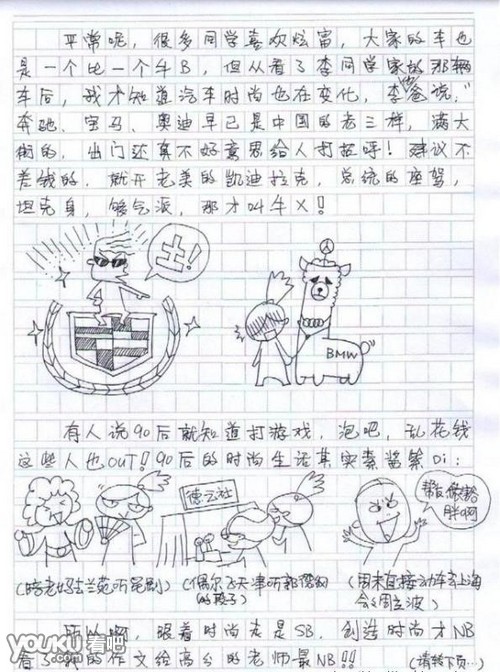 平常呢，很多同学喜欢炫富，大家的车也
是一个比一个牛B，但从看了李同学家的那辆
车后，我才知道汽车时尚也在变化，李爸说，"
奔驰、宝马、奥迪早已是中国的老三样，满大
街的，出门还真不好意思给人打招呼！建议不
差钱的，就开老美的凯迪拉克，总统的座驾，
坦克身，够气派，那才叫牛X！
土！
BMW
有人说90后就知道打游戏，泡吧，乱花钱
这些人也OUT！90后的时尚生活其实素酱紫Di：
德云社
帮我做
胖啊
（陪老妈去兰苑听昆剧）
（偶尔飞天津听郭德纲
的段子）
（周末直接动车去上海
会会周立波）
所以啊，跟着时尚走是SB，创造时尚才NB
看了 的作文给高分的老师最NB！！
（请转下页...）
YOUKU 着吧